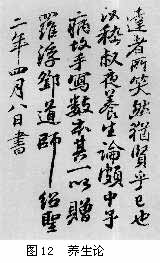 達者所笑然猶賢乎已也
以嵇叔夜養生論頗中予
病故手寫數本其一以贈
羅浮鄧道師紹聖
二年四月八日書
图12 养生论